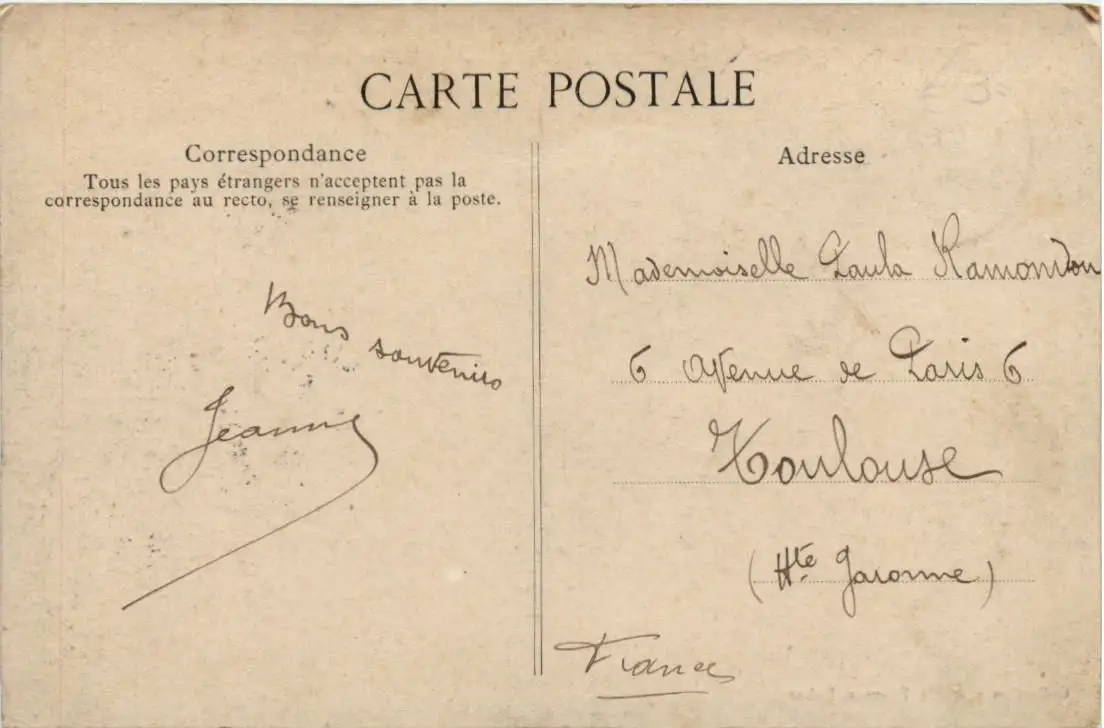 CARTE POSTALE
Correspondance
Tous les pays étrangers n'acceptent pas la
correspondance au recto, se renseigner à la poste.
Bons souvenirs
Jeanne
Adresse
Mademoiselle Paula Ramondou
6 Avenue de Paris 6
Toulouse
(Hte Garonne)
France